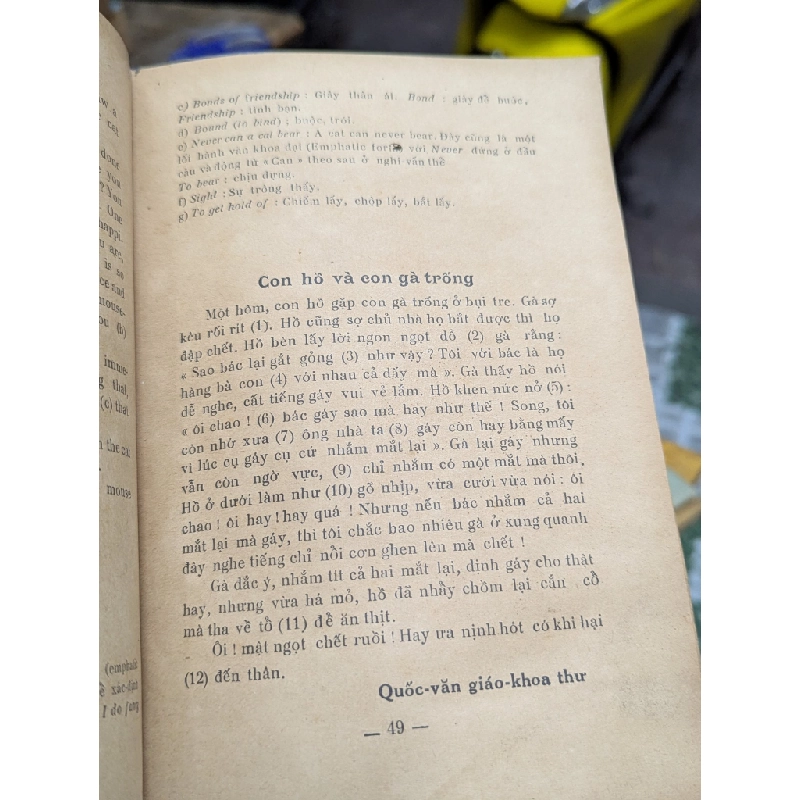 w a
cat
done
you
? You
One
happi.
are,
is so
and
mouse.
(b)
thai,
(c) that
n the ca.
mouse
(emphatic
ề xác-định
I do jung
c) Bonds of friendship : Giây thân ái. Bond : giây để buộc,
Friendship : tình bạn.
d) Bound (to bind) : buộc, trói.
e) Never can a cat bear : A cat can never bear. Đây cũng là một
lối hành văn khoa đại (Emphatic form) với Never đứng ở đầu
câu và động từ « Can » theo sau ở nghi vấn thể
To bear : chịu đựng.
f) Sight : Sự trông thấy.
g) To get hold of : Chiếm lấy, chóp lấy, bắt lấy.
Con hồ và con gà trống
Một hôm, con hồ gặp con gà trống ở bụi tre. Gà sợ
kêu rối rít (1). Hồ cũng sợ chủ nhà họ bắt được thì họ
đập chết. Hồ bèn lấy lời ngon ngọt dỗ (2) gà rằng:
« Sao bác lại gắt gỏng (3) như vậy ? Tôi với bác là họ
hàng bà con (4) với nhau cả đấy mà ». Gà thấy hồ nói
dễ nghe, cất tiếng gáy vui vẻ lắm. Hồ khen nức nở (5) :
« ôi chao ! (6) bác gáy sao mà hay như thế ! Song, tôi
còn nhớ xưa (7) ông nhà ta (8) gáy còn hay bằng mấy
vì lúc cụ gáy cụ cứ nhắm mắt lại ». Gà lại gáy nhưng
vẫn còn ngờ vực, (9) chỉ nhắm có một mắt mà thôi.
Hồ ở dưới làm như (10) gõ nhịp, vừa cười vừa nói : ôi
chao ! ôi hay ! hay quá ! Nhưng nếu bác nhắm cả hai
mắt lại mà gáy, thì tôi chắc bao nhiêu gà ở xung quanh
đây nghe tiếng chỉ nổi cơn ghen lên mà chết !
Gà đắc ý, nhắm tít cả hai mắt lại, dinh gáy cho thật
hay, nhưng vừa há mỏ, hồ đã nhầy chồm lại cắn cổ
mà tha về tổ (11) để ăn thịt.
Ôi ! mật ngọt chết ruồi ! Hay ưa nịnh hót có khi hại
(12) đến thân.
Quốc-văn giáo-khoa thư
— 49 —